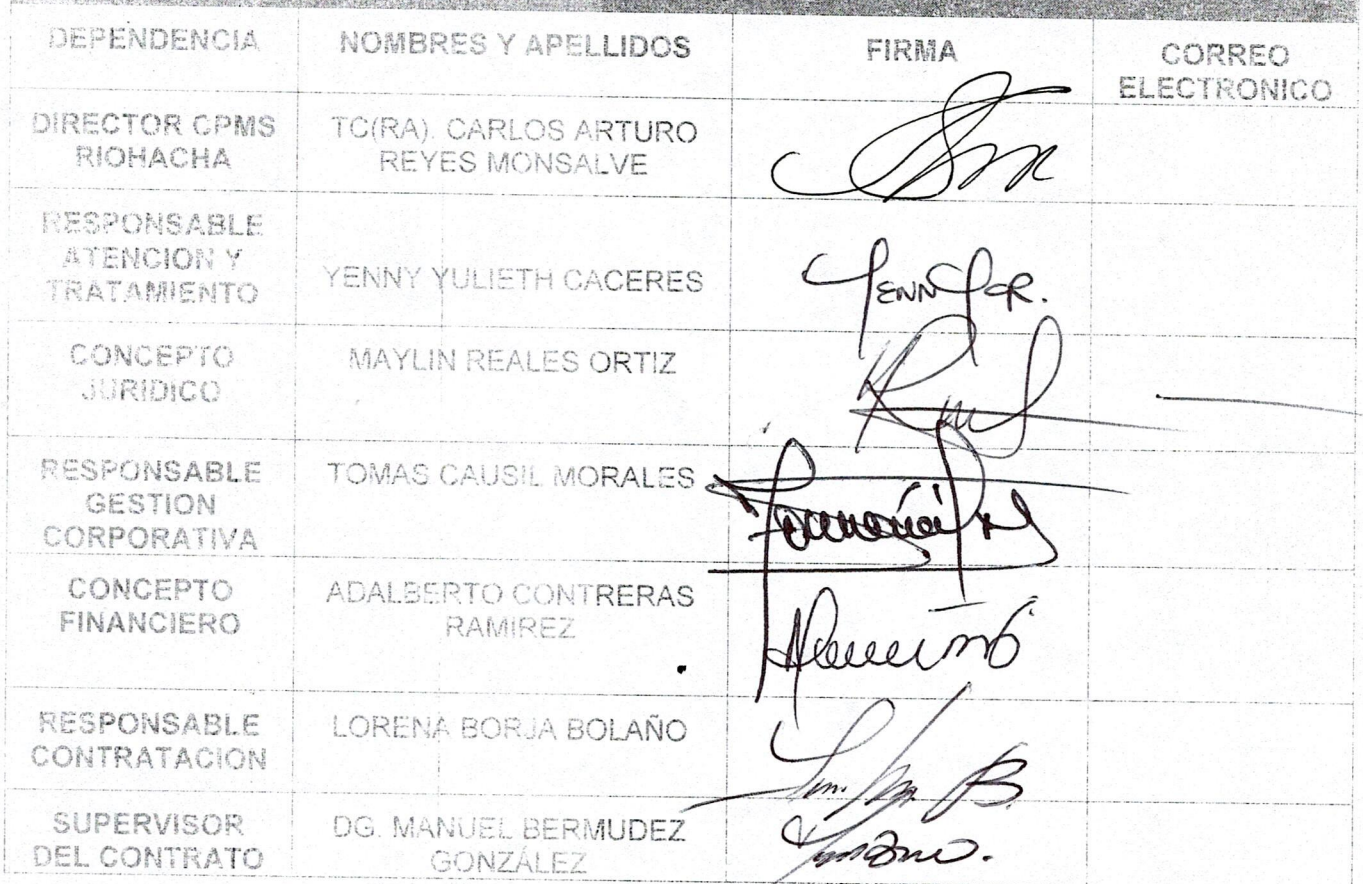 DEPENDENCIA
NOMBRES Y APELLIDOS
FIRMA
CORREO
ELECTRONICO
DIRECTOR CPMS
RIOHACHA
TC(RA). CARLOS ARTURO
REYES MONSALVE
RESPONSABLE
ATENCION Y
TRATAMIENTO
YENNY YULIETH CACERES
CONCEPTO
JURIDICO
MAYLIN REALES ORTIZ
RESPONSABLE
GESTION
CORPORATIVA
TOMAS CAUSIL MORALES
CONCEPTO
FINANCIERO
ADALBERTO CONTRERAS
RAMIREZ
RESPONSABLE
CONTRATACION
LORENA BORJA BOLAÑO
SUPERVISOR
DEL CONTRATO
DG. MANUEL BERMUDEZ
GONZÁLEZ